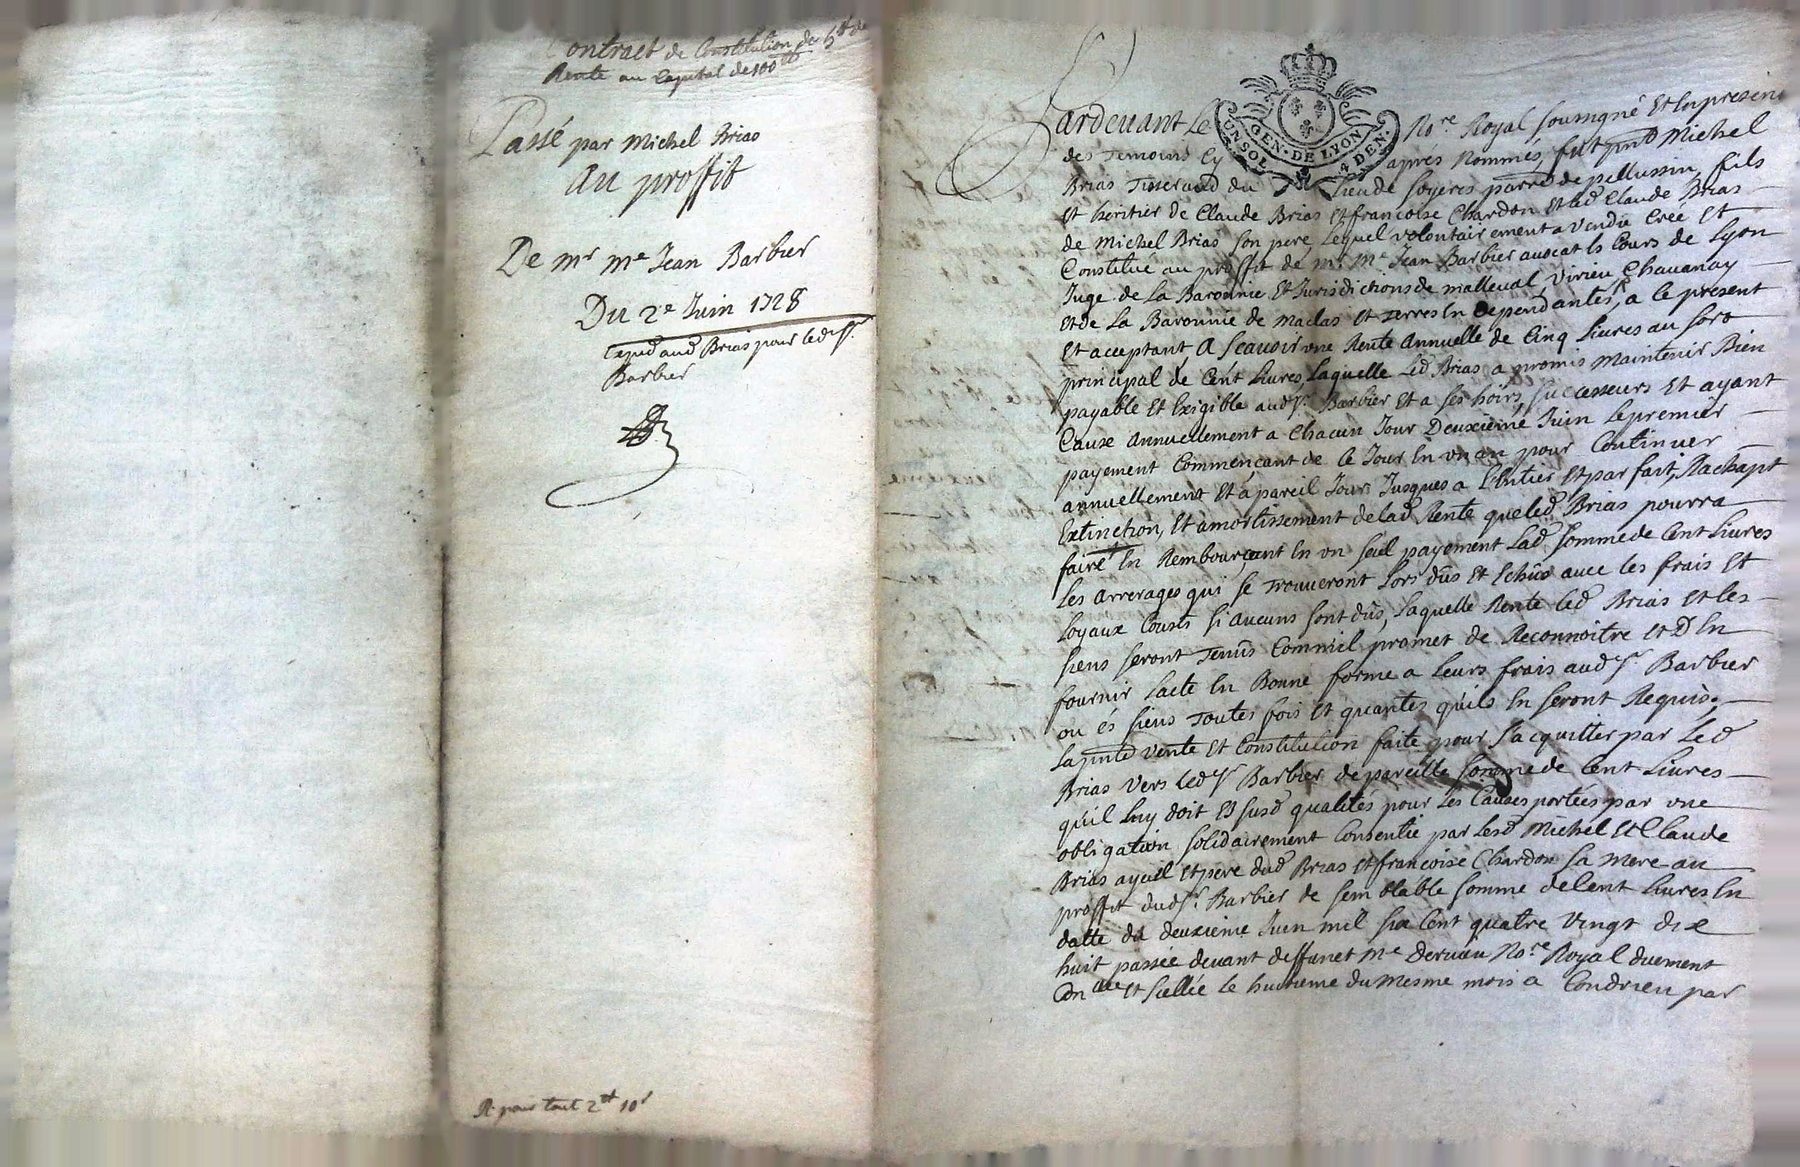 Contract de Constitution de 5ᵗᵗ de
Rente au Capital de 100ᵗᵗ
Passé par Michel Brias
Au proffit
De mʳ mᵉ Jean Barbier
Du 2ᵉ Juin 1728
expéd aud Brias pour led sʳ.
Barbier
R. pour tout 2ᵗᵗ 10ˢ
GEN. DE LYON
ON SOL 4 DEN.
Pardevant Le Noʳᵉ Royal soussigné Et En presence
des Temoins Cy après Nommés, fut pnt Michel
Brias Tisserand du Lieu de soyeres parrᵉ de pellussin, fils
Et heritier de Claude Brias Et francoise Chardon Et led Claude Brias
de Michel Brias son pere, Lequel volontairement a vendu Créé Et
Constitué au proffit de mʳ. Mᵉ Jean Barbier avocat Es Cours de Lyon
Juge de la Baronnie Et Jurisdictions de malleval, Virieu Chavanay
Et de La Baronnie de Maclas Et Terres En dependantes, a Ce present
Et acceptant A Scavoir une Rente Annuelle de Cinq Livres au sort
principal de Cent Livres, Laquelle Led Brias a promis Maintenir Bien
payable Et Exigible aud sʳ. Barbier Et a ses hoirs, successeurs Et ayant
Cause Annuellement a Chacun Jour Deuxieme Juin Le premier
payement Commençant de Ce Jour En un an pour Continuer
annuellement Et à pareil Jour Jusques a L'Entier Et parfait, Rachapt
Extinction, Et amortissement de lad Rente que led Brias pourra
faire En Remboursant En un seul payement Lad somme de Cent Livres
Les arrerages qui se trouveront Lors dûs Et Echûs avec les frais Et
Loyaux Cousts si aucuns sont dûs, Laquelle Rente led Brias Et les
siens seront Tenûs Comm'il promet de Reconnoitre Et D'En
fournir L'acte En Bonne forme a Leurs frais aud sʳ. Barbier
ou és siens Toutes fois Et quantes qu'ils En seront Requis.
La pnte vente Et Constitution faite pour s'acquitter par Led
Brias Vers led sʳ Barbier de pareille somme de Cent Livres
qu'il Luy doit Es susd qualités pour Les Causes portées par une
obligation solidairement Consentie par lesd Michel Et Claude
Brias ayeul Et pere dud Brias Et francoise Chardon sa mere au
proffit dud sʳ. Barbier de semblable somme de Cent Livres En
datte du deuxieme Juin mil six Cent quatre Vingt dix
huit passée devant deffunct Mᵉ Dervieu Noʳᵉ Royal duement
Conᵗˡᵉᵉ Et scellée Le huitieme du Mesme mois a Condrieu par